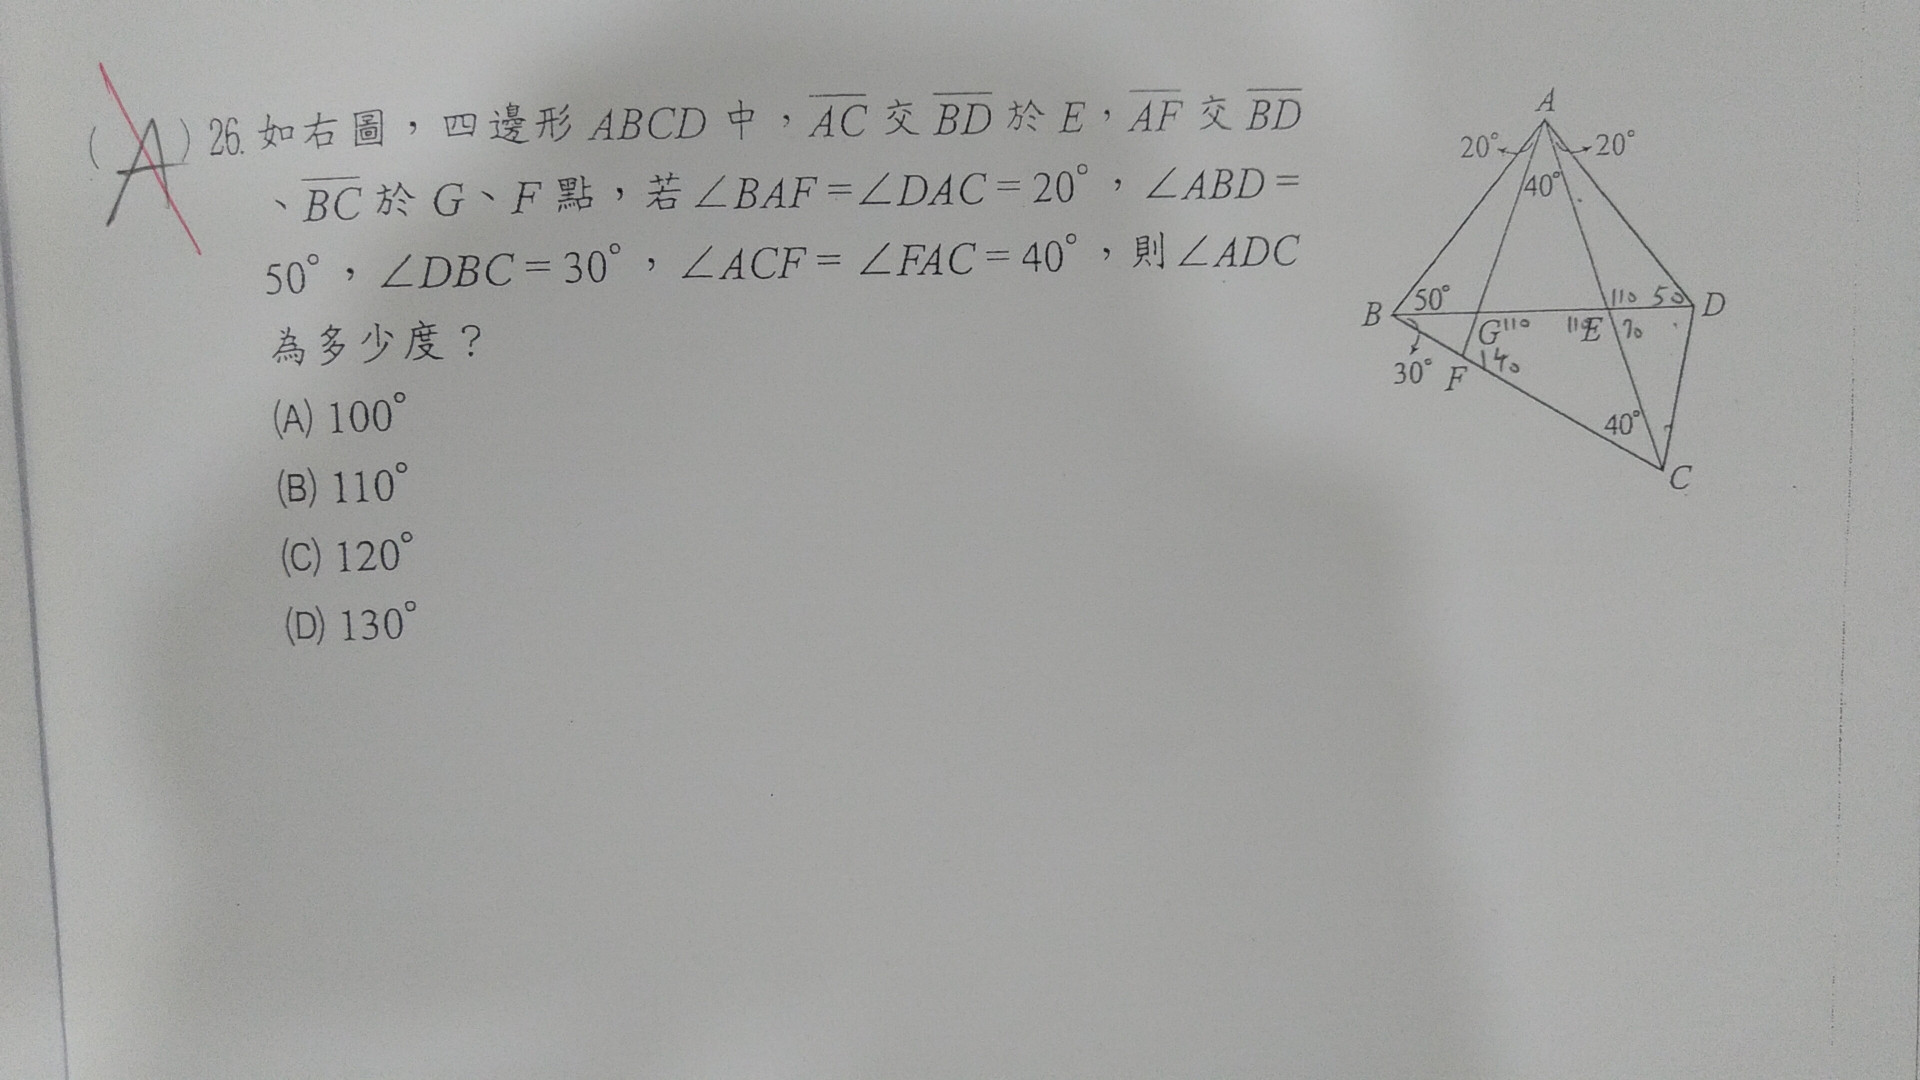 (A) 26. 如右圖，四邊形 ABCD 中，AC 交 BD 於 E，AF 交 BD
、BC 於 G、F 點，若∠BAF=∠DAC=20°，∠ABD=
50°，∠DBC=30°，∠ACF=∠FAC=40°，則∠ADC
為多少度？
(A) 100°
(B) 110°
(C) 120°
(D) 130°
A
20° 20°
40°
B 50° 110 50 D
G 110 110 E 70
30° F 140
40°
C